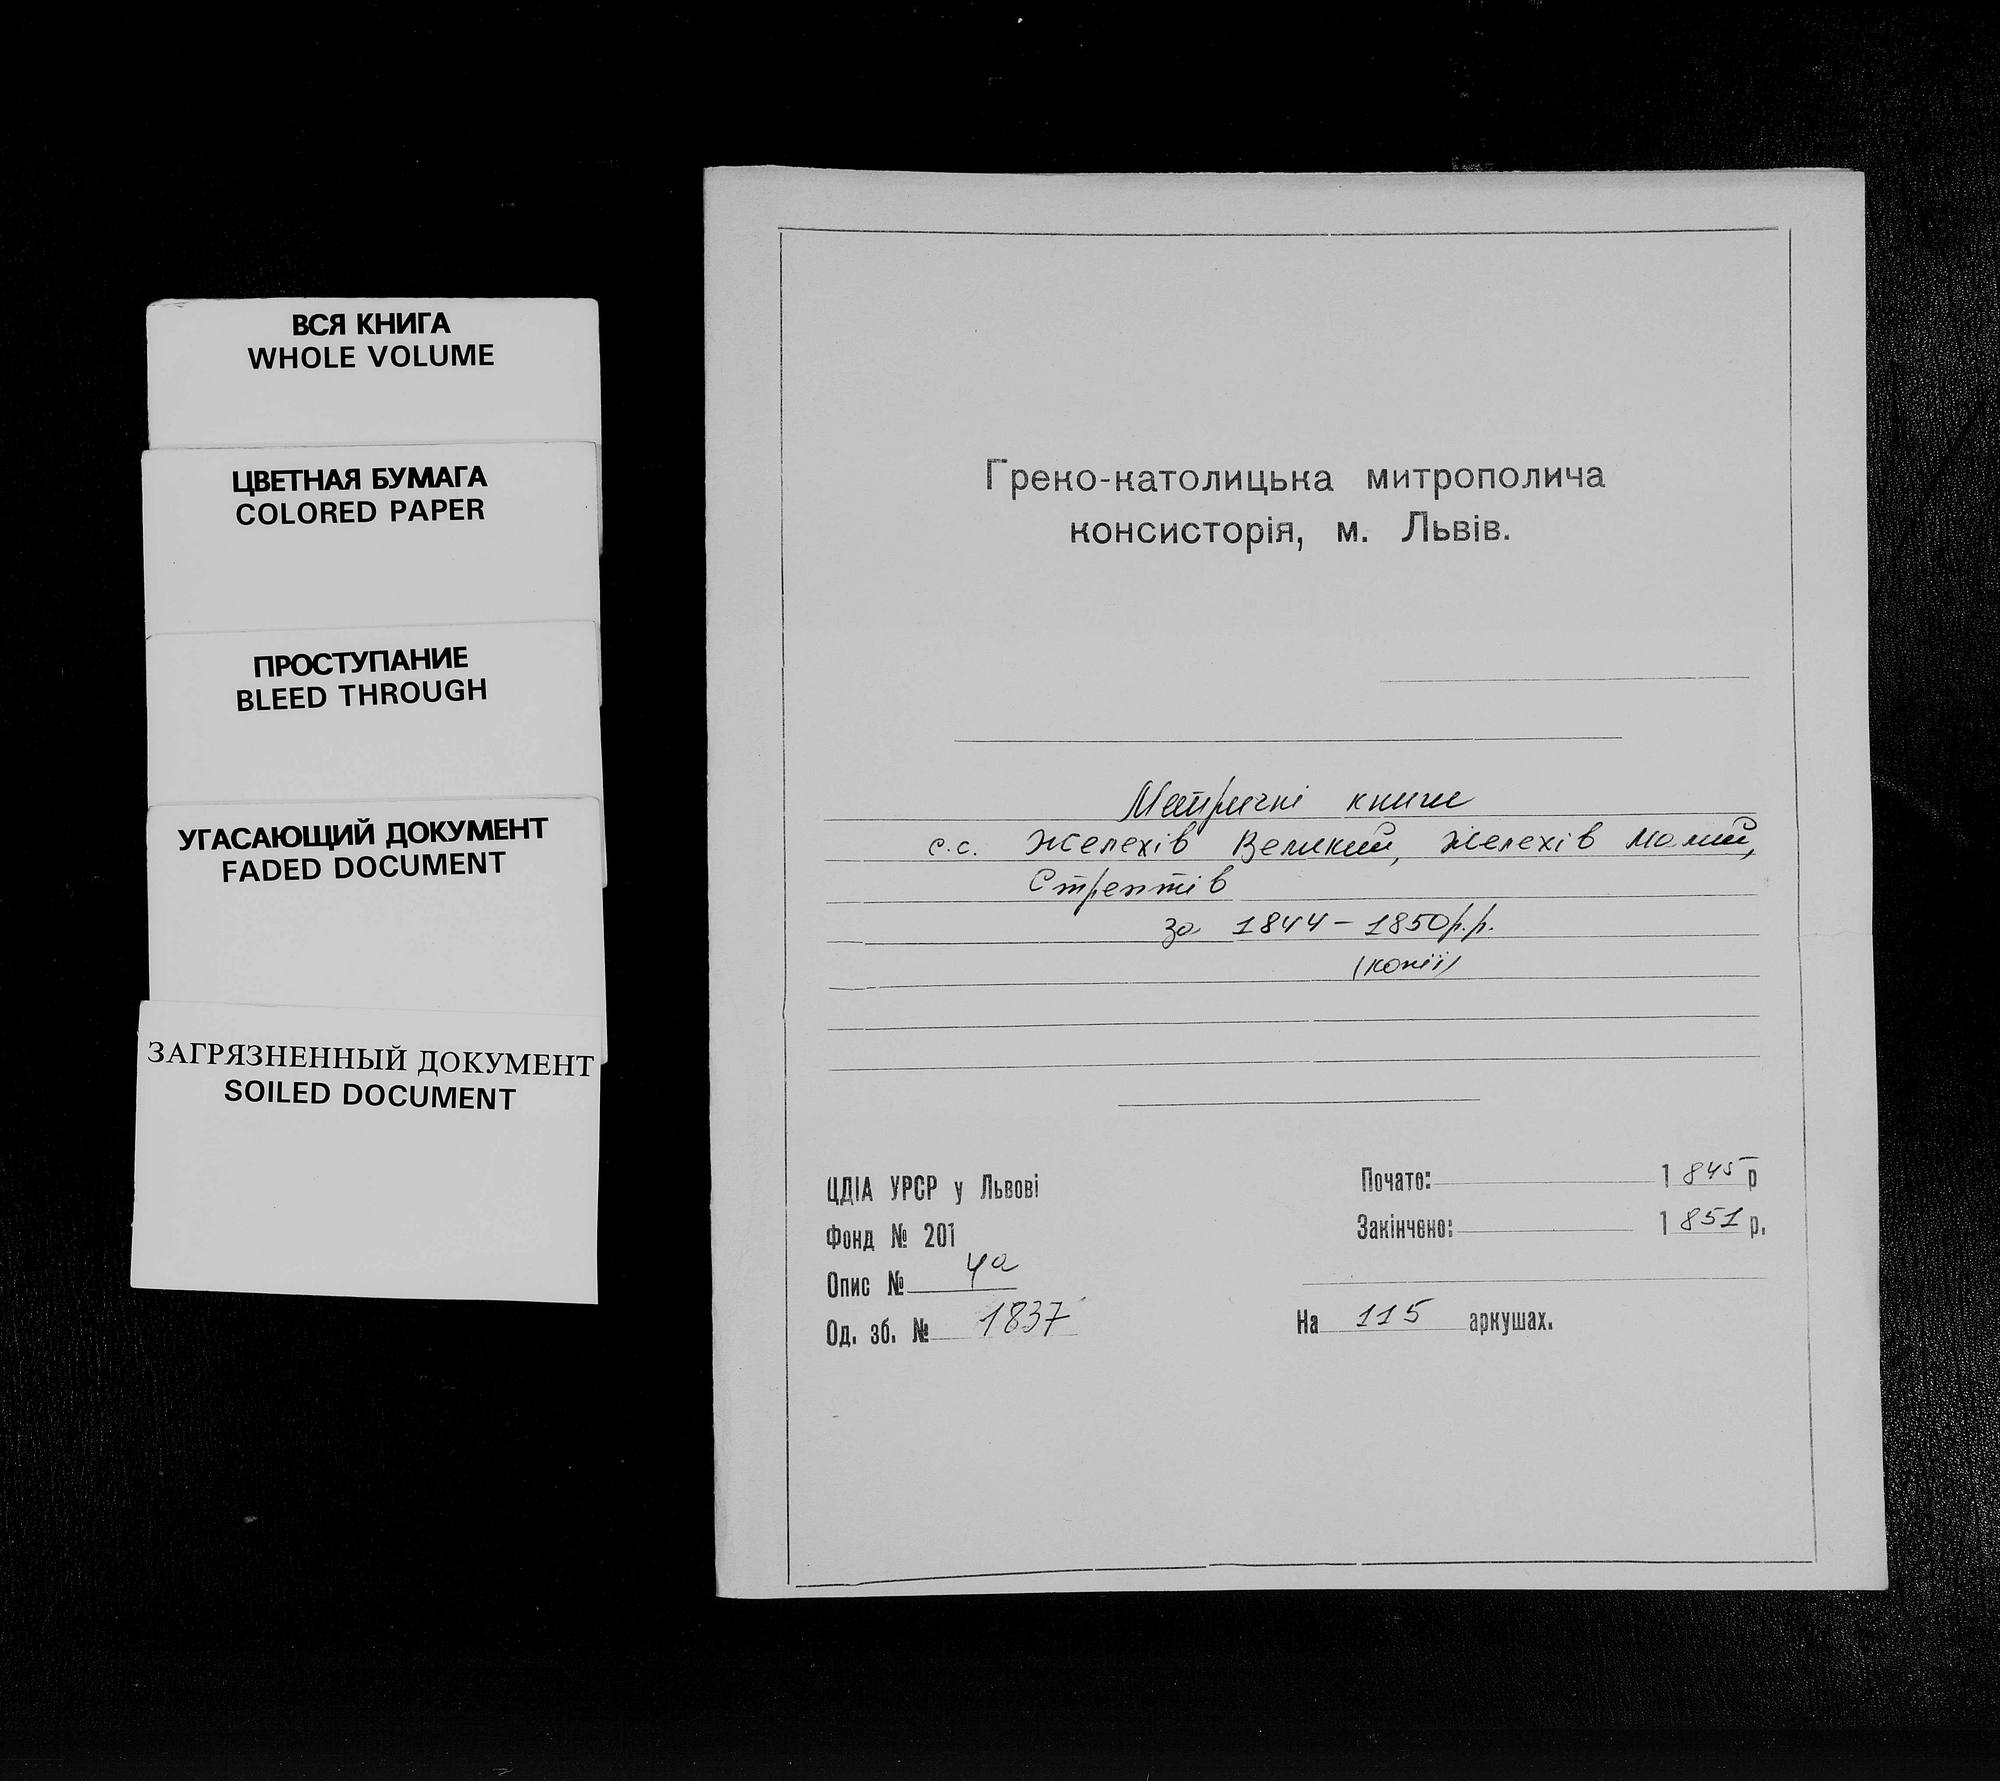 ВСЯ КНИГА
WHOLE VOLUME
ЦВЕТНАЯ БУМАГА
COLORED PAPER
ПРОСТУПАНИЕ
BLEED THROUGH
УГАСАЮЩИЙ ДОКУМЕНТ
FADED DOCUMENT
ЗАГРЯЗНЕННЫЙ ДОКУМЕНТ
SOILED DOCUMENT
Греко-католицька митрополича
консисторія, м. Львів.
Метричні книги
с.с. Желехів Великий, Желехів Малий,
Стрептів
за 1844 - 1850 р.р.
(копії)
ЦДІА УРСР у Львові
Фонд № 201
Опис № 4а
Од. зб. № 1837
Почато: 1845 р
Закінчено: 1851 р.
На 115 аркушах.